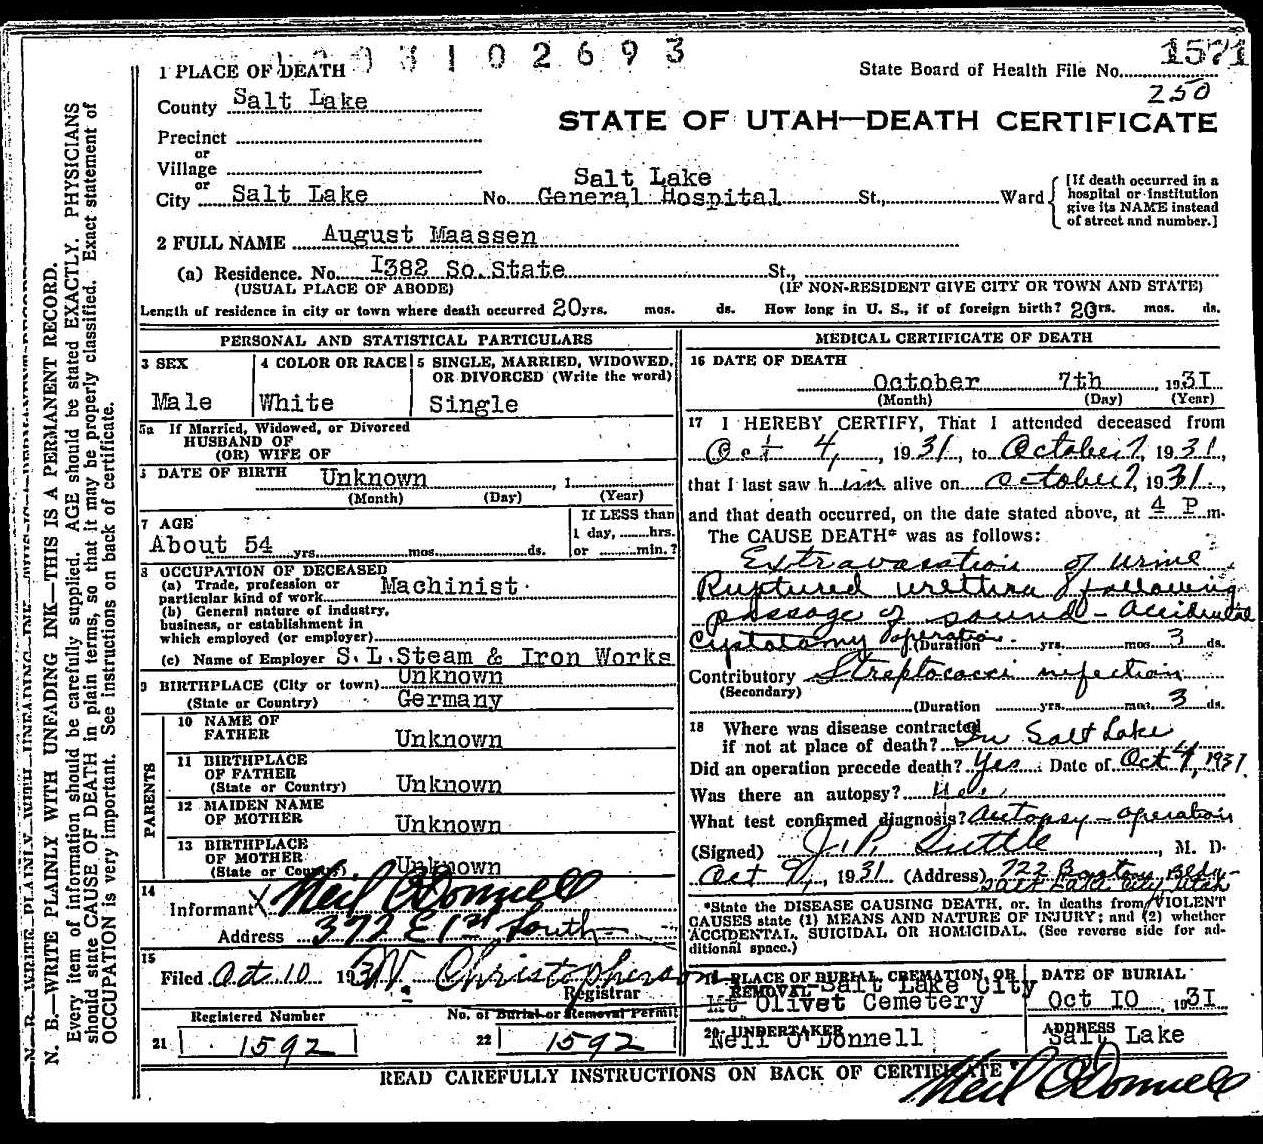 3 1 0 2 6 9 3
1571
State Board of Health File No.
250
1 PLACE OF DEATH
County Salt Lake
STATE OF UTAH—DEATH CERTIFICATE
Precinct
or
Village
or
City Salt Lake No. Salt Lake General Hospital St., Ward
[If death occurred in a
hospital or institution
give its NAME instead
of street and number.]
2 FULL NAME August Maassen
(a) Residence. No. I382 So. State St.,
(USUAL PLACE OF ABODE) (IF NON-RESIDENT GIVE CITY OR TOWN AND STATE)
Length of residence in city or town where death occurred 20 yrs. mos. ds. How long in U. S., if of foreign birth? 20 yrs. mos. ds.
PERSONAL AND STATISTICAL PARTICULARS
3 SEX
Male
4 COLOR OR RACE
White
5 SINGLE, MARRIED, WIDOWED,
OR DIVORCED (Write the word)
Single
5a If Married, Widowed, or Divorced
HUSBAND OF
(OR) WIFE OF
DATE OF BIRTH Unknown , 1
(Month) (Day) (Year)
7 AGE
About 54 yrs. mos. ds.
If LESS than
1 day, hrs.
or min.?
8 OCCUPATION OF DECEASED
(a) Trade, profession or
particular kind of work Machinist
(b) General nature of industry,
business, or establishment in
which employed (or employer)
(c) Name of Employer S. L. Steam & Iron Works
9 BIRTHPLACE (City or town) Unknown
(State or Country) Germany
PARENTS
10 NAME OF
FATHER Unknown
11 BIRTHPLACE
OF FATHER
(State or Country) Unknown
12 MAIDEN NAME
OF MOTHER Unknown
13 BIRTHPLACE
OF MOTHER
(State or Country) Unknown
14
Informant Neil O'Donnell
Address 372 E 1st South
15
Filed Oct. 10 1931 W. Christopherson
Registrar
Registered Number
21 1592
No. of Burial or Removal Permit
22 1592
MEDICAL CERTIFICATE OF DEATH
16 DATE OF DEATH
October 7th 1931
(Month) (Day) (Year)
17 I HEREBY CERTIFY, That I attended deceased from
Oct 4, 1931, to October 7, 1931,
that I last saw him alive on October 7 1931,
and that death occurred, on the date stated above, at 4 P m.
The CAUSE DEATH* was as follows:
Extravasation of urine
Ruptured urethra following
passage of sound - Accidental
Cystotomy operation (Duration yrs. mos. 3 ds.
Contributory Streptococci infection
(Secondary)
(Duration yrs. mos. 3 ds.
18 Where was disease contracted
if not at place of death? In Salt Lake
Did an operation precede death? Yes Date of Oct 4, 1931
Was there an autopsy? Yes
What test confirmed diagnosis? Autopsy - operation
(Signed) J. P. , M. D.
Oct 9, 1931 (Address) 722 Boston Bldg -
Salt Lake City, Utah
*State the DISEASE CAUSING DEATH, or, in deaths from VIOLENT
CAUSES state (1) MEANS AND NATURE OF INJURY; and (2) whether
ACCIDENTAL, SUICIDAL OR HOMICIDAL. (See reverse side for ad-
ditional space.)
19 PLACE OF BURIAL, CREMATION, OR
REMOVAL Salt Lake City
Mt Olivet Cemetery
DATE OF BURIAL
Oct IO 1931
20 UNDERTAKER
Neil O'Donnell
ADDRESS
Salt Lake
READ CAREFULLY INSTRUCTIONS ON BACK OF CERTIFICATE
Neil O'Donnell
N. B.—WRITE PLAINLY WITH UNFADING INK—THIS IS A PERMANENT RECORD.
Every item of information should be carefully supplied. AGE should be stated EXACTLY. PHYSICIANS
should state CAUSE OF DEATH in plain terms, so that it may be properly classified. Exact statement of
OCCUPATION is very important. See instructions on back of certificate.